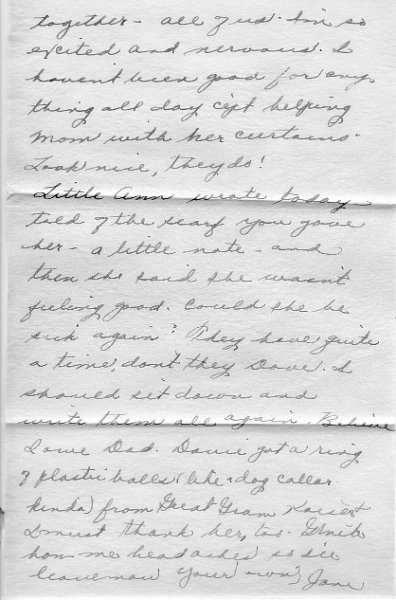 together - all of us. I'm so
excited and nervous. I
haven't been good for any-
thing all day c'ept helping
Mom with her curtains.
Look nice, they do!
Little Ann wrote today -
told of the scarf you gave
her - a little note - and
then she said she wasn't
feeling good. Could she be
sick again? They have quite
a time, don't they Dave. I
should sit down and
write them all again. Believe
I owe Dad. Davie got a ring
of plastic balls (like a dog collar
kinda) from Great Gram Kaiser &
I must thank her, too. G'nite
hon - me headaches so
leave now your own, Jane